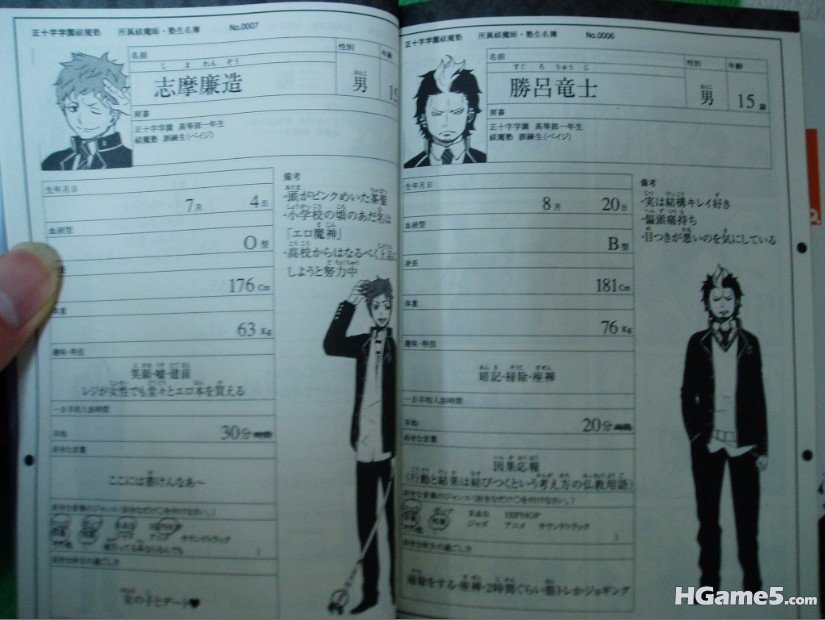 正十字学園祓魔塾・ 所属祓魔師・塾生名簿 No.0007
名前
しま れんぞう
志摩廉造
性別
おとこ
男
年齢
15
肩書
正十字学園 高等部一年生
祓魔塾 訓練生(ペイジ)
生年月日
7月 4日
血液型
O型
身長
176Cm
体重
63Kg
趣味・特技
笑顔・嘘・建前
レジが女性でも堂々とエロ本を買える
一日平均入浴時間
平均 30分
好きな言葉
ここには書けんなあ〜
好きな音楽のジャンル
HIPHOP
サウンドトラック
好きな休日の過ごし方
女の子とデート♥
備考
・頭がピンクめいた茶髪
・小学校の頃のあだ名は
「エロ魔神」
・高校からはなるべく上品に
しようと努力中
正十字学園祓魔塾・ 所属祓魔師・塾生名簿 No.0006
名前
すぐろ りゅうじ
勝呂竜士
性別
おとこ
男
年齢
15歳
肩書
正十字学園 高等部一年生
祓魔塾 訓練生(ペイジ)
生年月日
8月 20日
血液型
B型
身長
181Cm
体重
76Kg
趣味・特技
暗記・掃除・座禅
一日平均入浴時間
平均 20分
好きな言葉
因果応報
(行動と結果は結びつくという考え方の仏教用語)
好きな音楽のジャンル
HIPHOP
ジャズ アニメ サウンドトラック
好きな休日の過ごし方
掃除をする・座禅・2時間ぐらい筋トレかジョギング
備考
・実は結構キレイ好き
・偏頭痛持ち
・目つきが悪いのを気にしている
HGame5.com